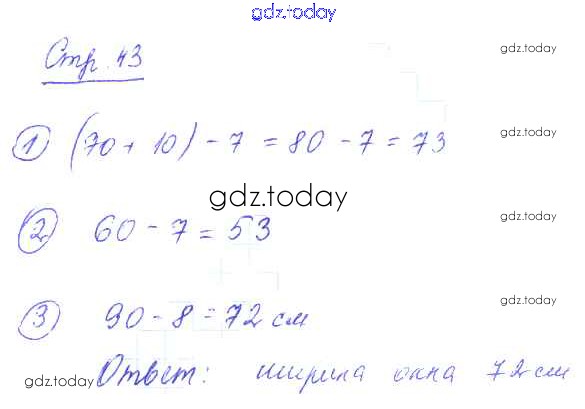 gdz.today
gdz.today
Стр. 43
gdz.today
1) (70 + 10) - 7 = 80 - 7 = 73
gdz.today
gdz.today
2) 60 - 7 = 53
gdz.today
3) 90 - 8 = 72 см
Ответ: ширина окна 72 см
gdz.today
gdz.today